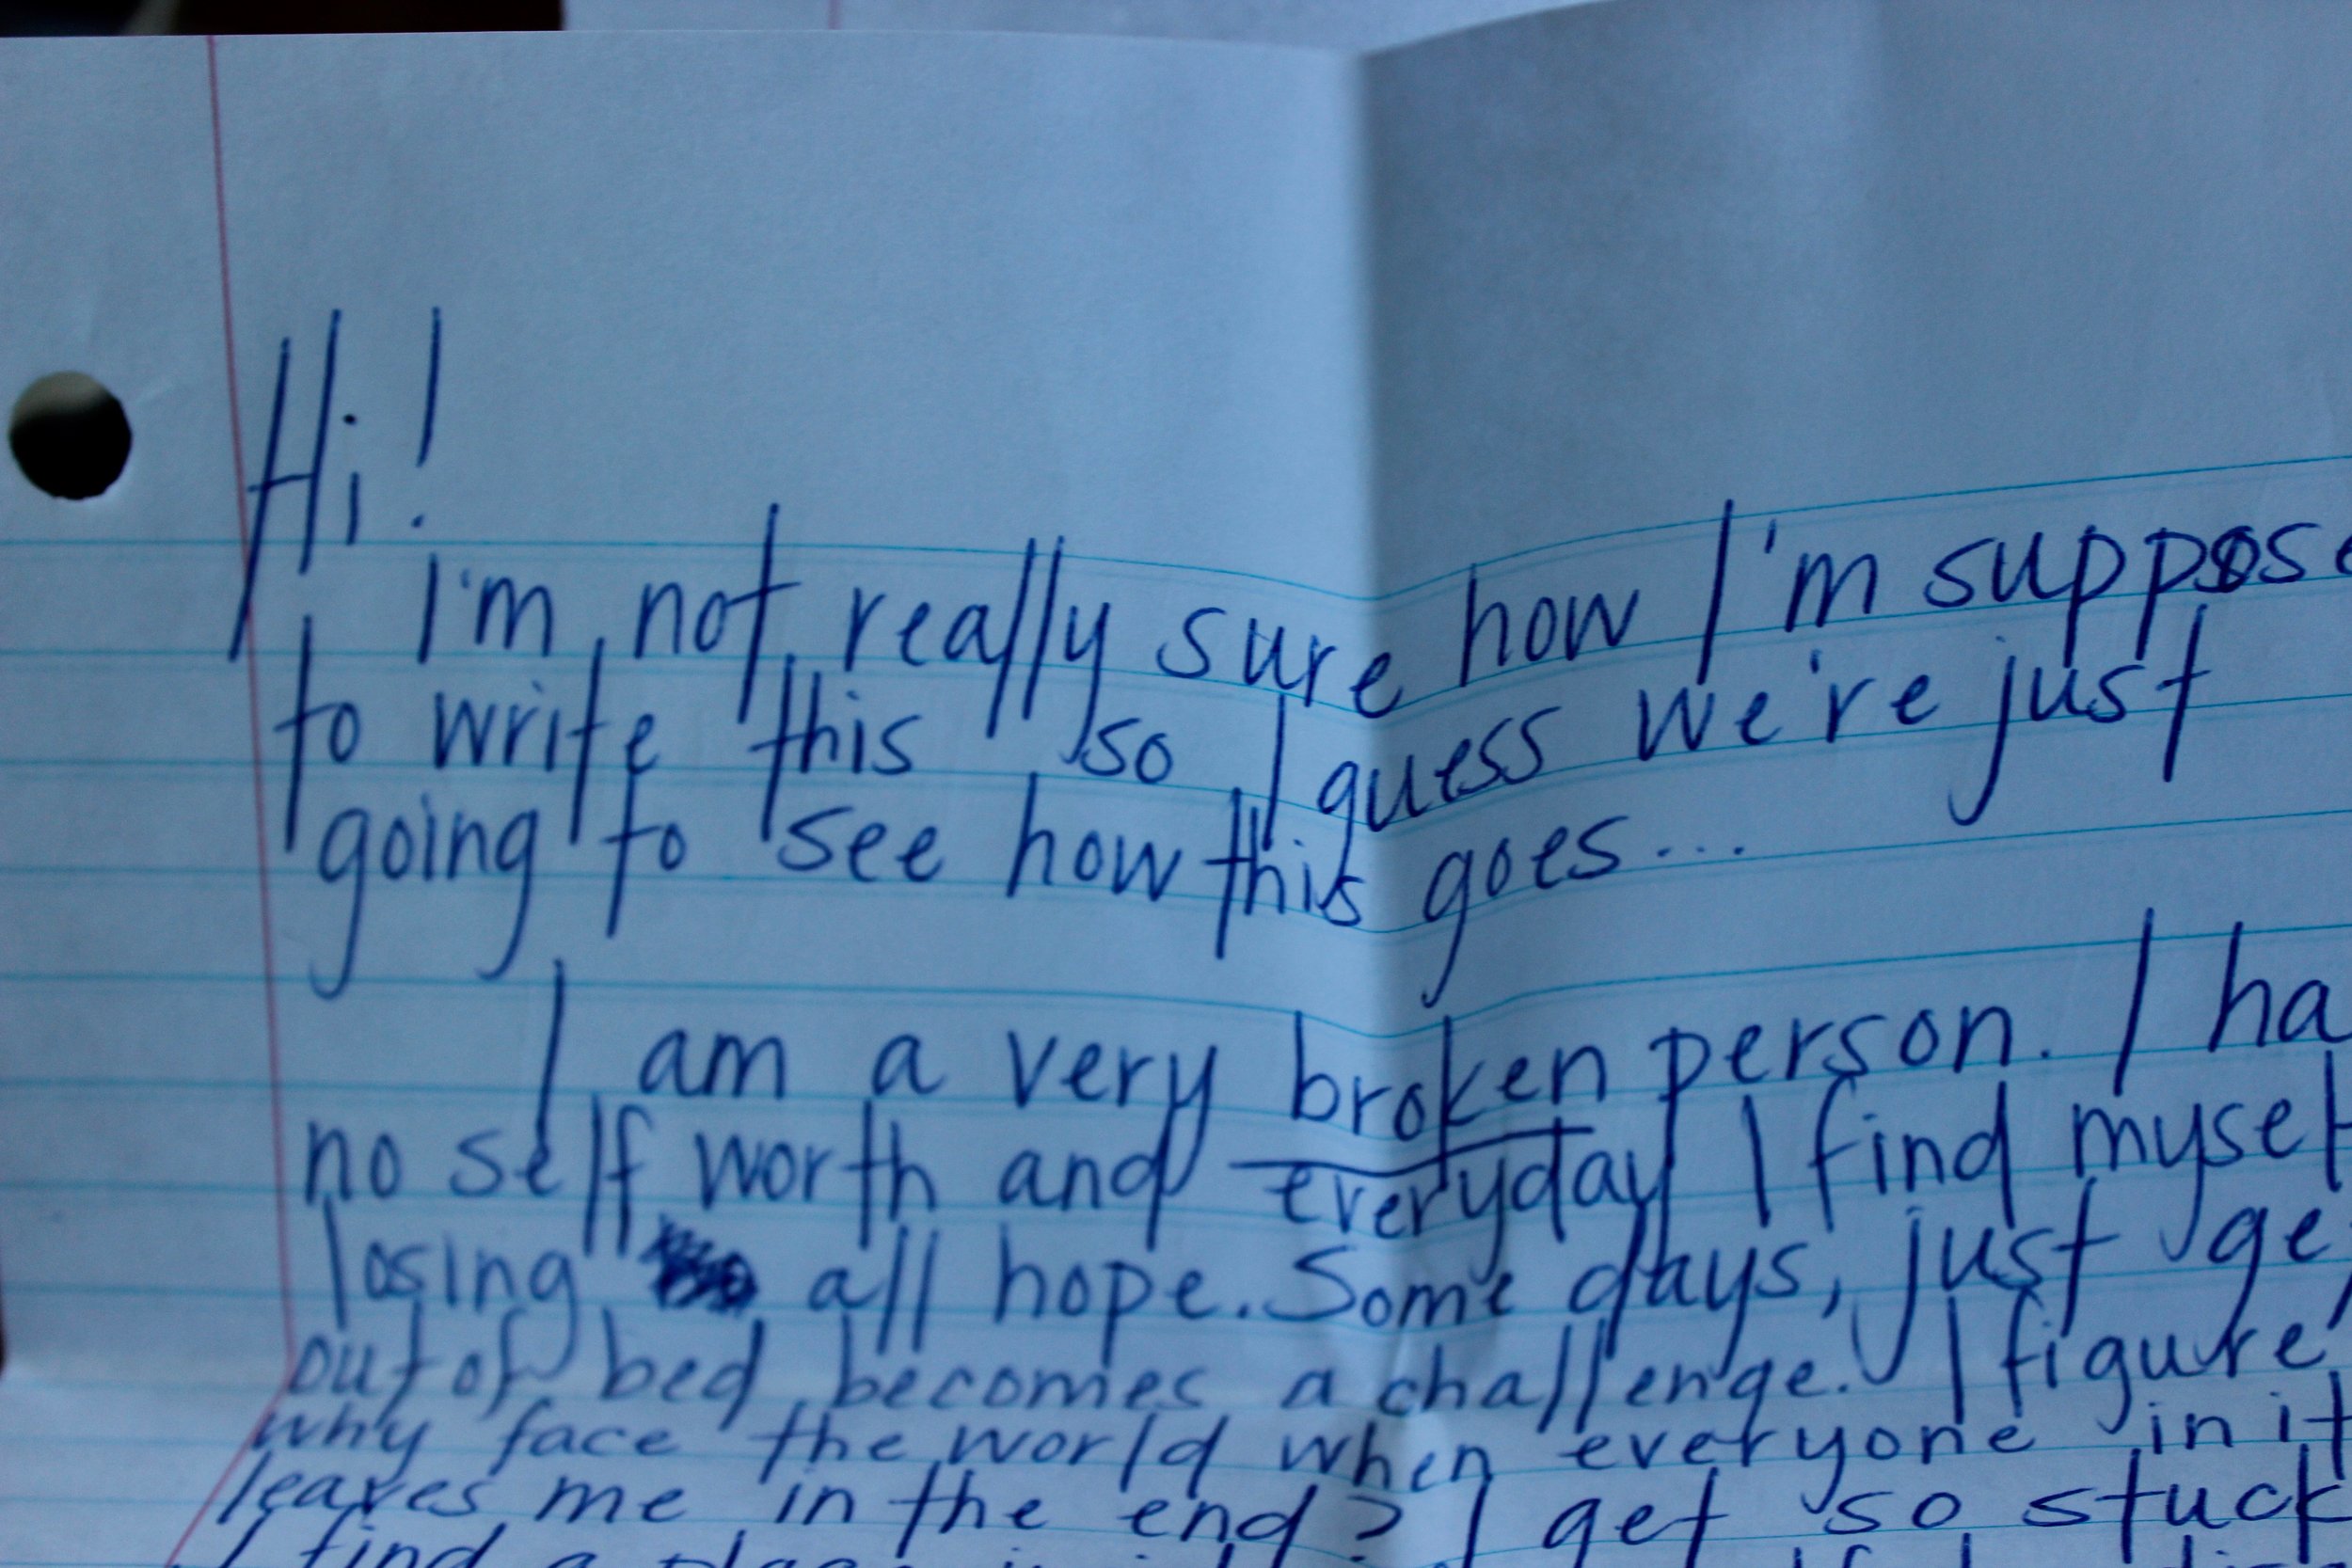 Hi!
I'm not really sure how I'm suppose
to write this so I guess we're just
going to see how this goes...
I am a very broken person. I ha
no self worth and everyday I find mysel
losing all hope. Some days, just ge
out of bed becomes a challenge. I figure,
why face the world when everyone in it
leaves me in the end? I get so stuck
I find a